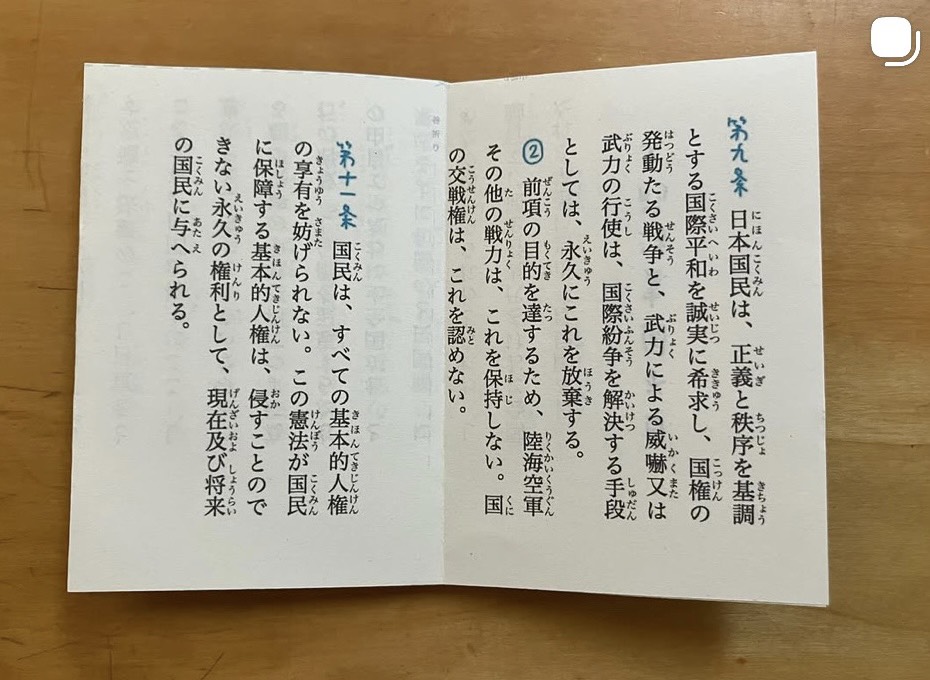 第九条 日本国民は、正義と秩序を基調
とする国際平和を誠実に希求し、国権の
発動たる戦争と、武力による威嚇又は
武力の行使は、国際紛争を解決する手段
としては、永久にこれを放棄する。
② 前項の目的を達するため、陸海空軍
その他の戦力は、これを保持しない。国
の交戦権は、これを認めない。
第十一条 国民は、すべての基本的人権
の享有を妨げられない。この憲法が国民
に保障する基本的人権は、侵すことので
きない永久の権利として、現在及び将来
の国民に与へられる。